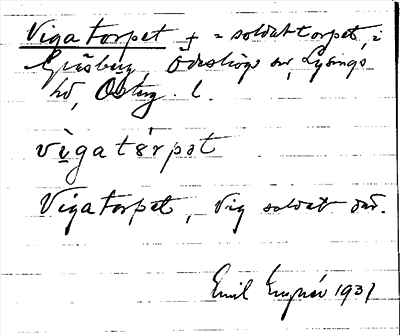 Vigatorpet † = soldattorpet, i
Gräsberg, Ödeshögs sn, Lysings
hd, Östg. l.
vìgatɛrpət
Vigatorpet, Vig soldat där.
Emil 1931